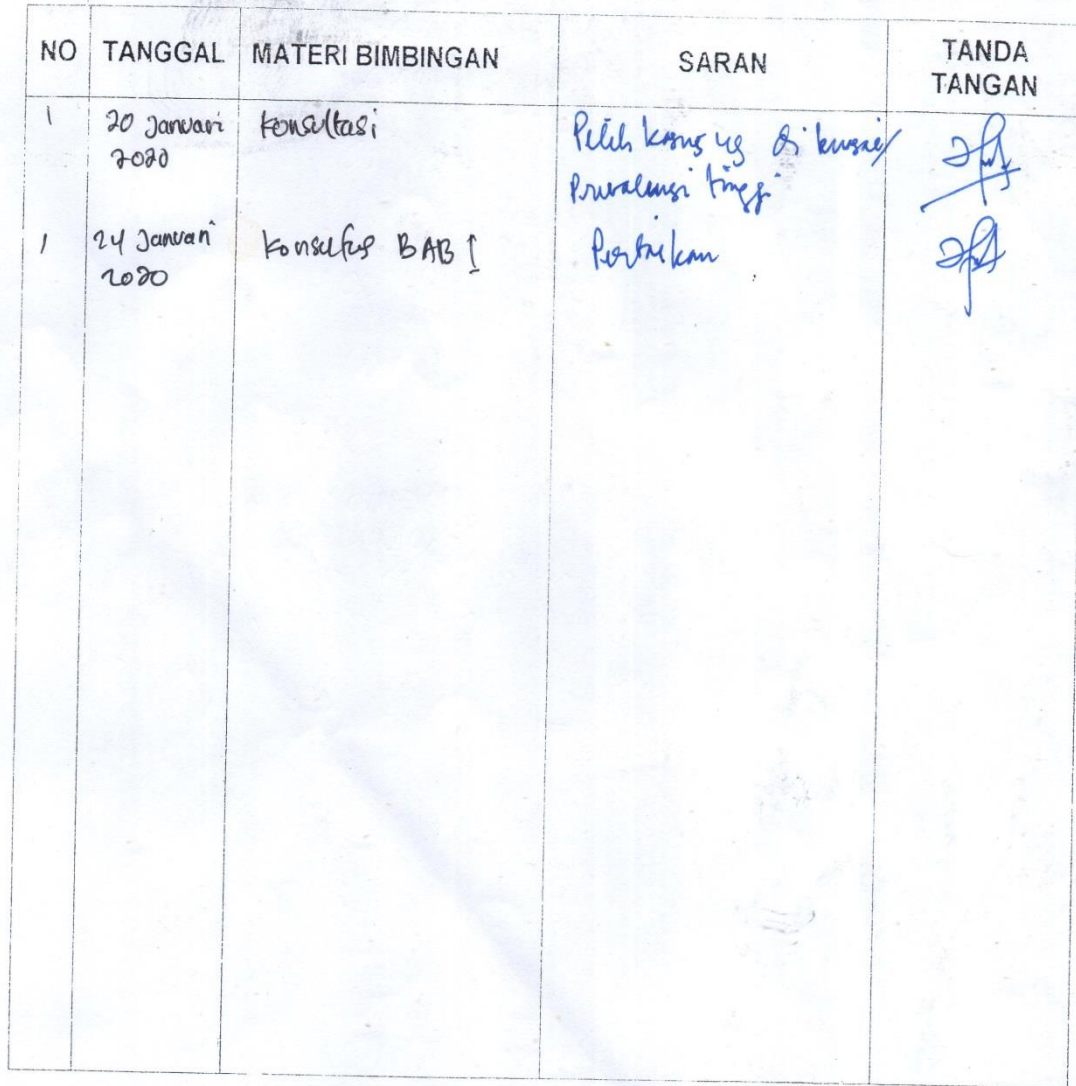 NO TANGGAL MATERI BIMBINGAN SARAN TANDA TANGAN
1 20 Januari 2020 Konsultasi Pilih kasus yg di kuasai/
Prevalensi tinggi
1 24 Januari 2020 Konsultasi BAB I Perbaikan